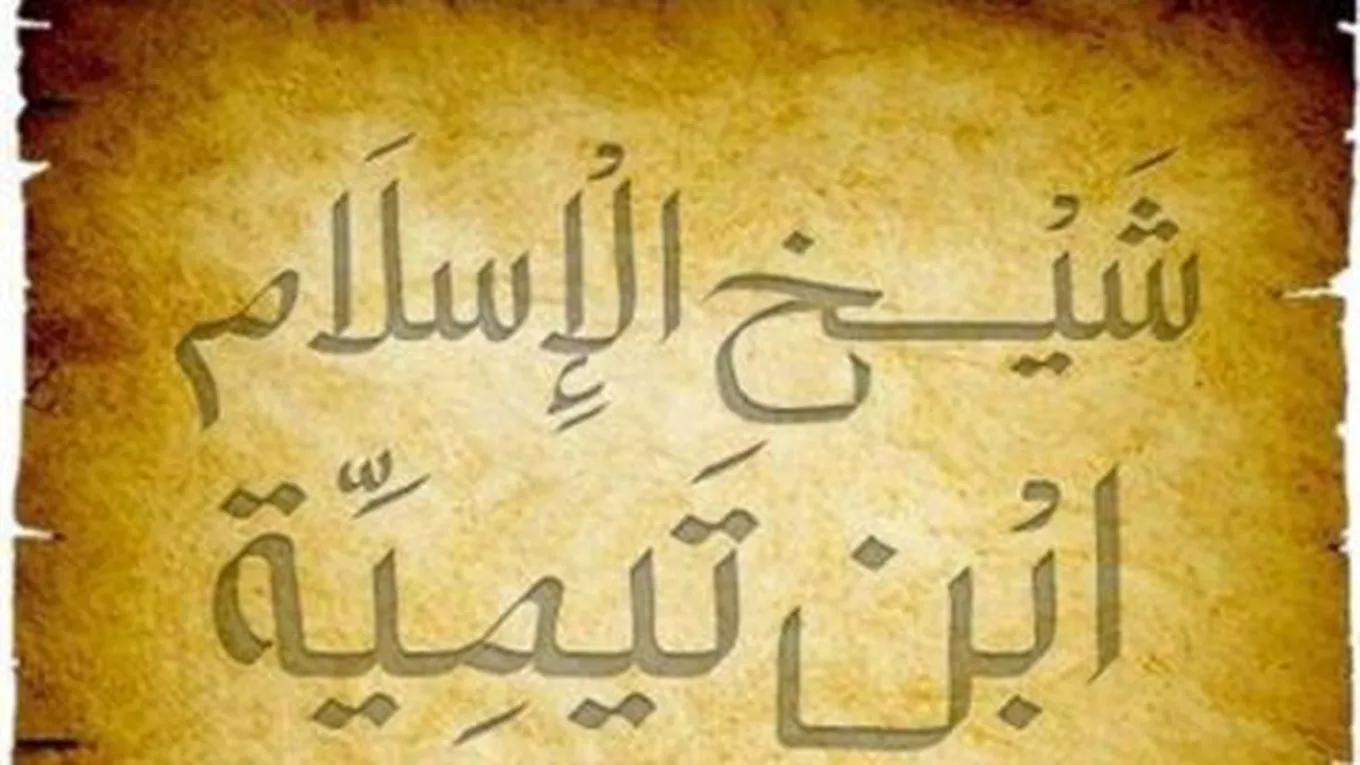 شَيْخ الْإِسلَام
ابْن تَيمِيَّة